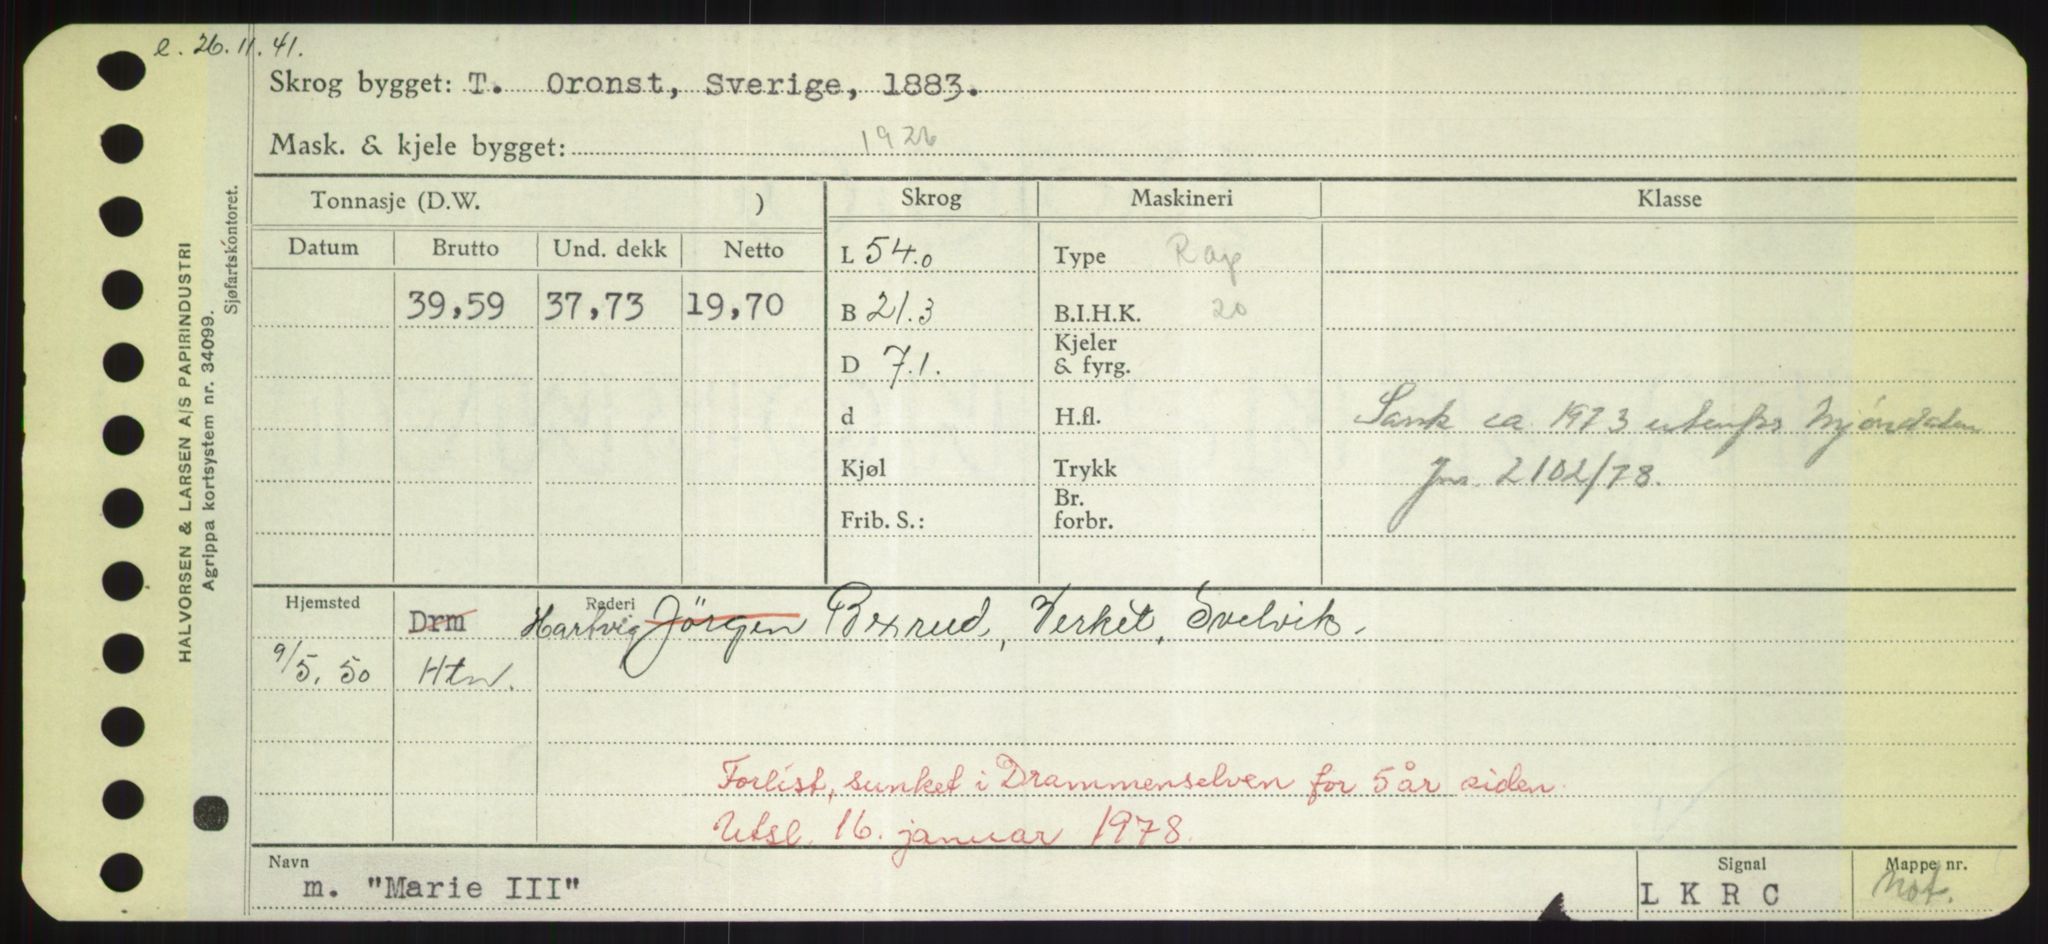 e. 26.11.41.
Skrog bygget: T. Oronst, Sverige, 1883.
Mask. & kjele bygget: 1926
Tonnasje (D.W. ) Skrog Maskineri Klasse
Datum Brutto Und. dekk Netto L 54.0 Type
39,59 37,73 19,70 B 21.3 B.I.H.K. 20
D 7.1. Kjeler & fyrg.
d H.fl. Sank ca 1973 utenfor Mjøndalen
Kjøl Trykk Jnr. 2102/78.
Frib. S.: Br. forbr.
Hjemsted Rederi
Drm Hartvig Jörgen Bexrud, Verket, Svelvik.
9/5.50 Htn.
Forlist, sunket i Drammenselven for 5 år siden
Utsl. 16. januar 1978.
Navn Signal Mappe nr.
m. "Marie III" L K R C Mot.
HALVORSEN & LARSEN A/S PAPIRINDUSTRI
Agrippa kortsystem nr. 34099.
Sjøfartskontoret.